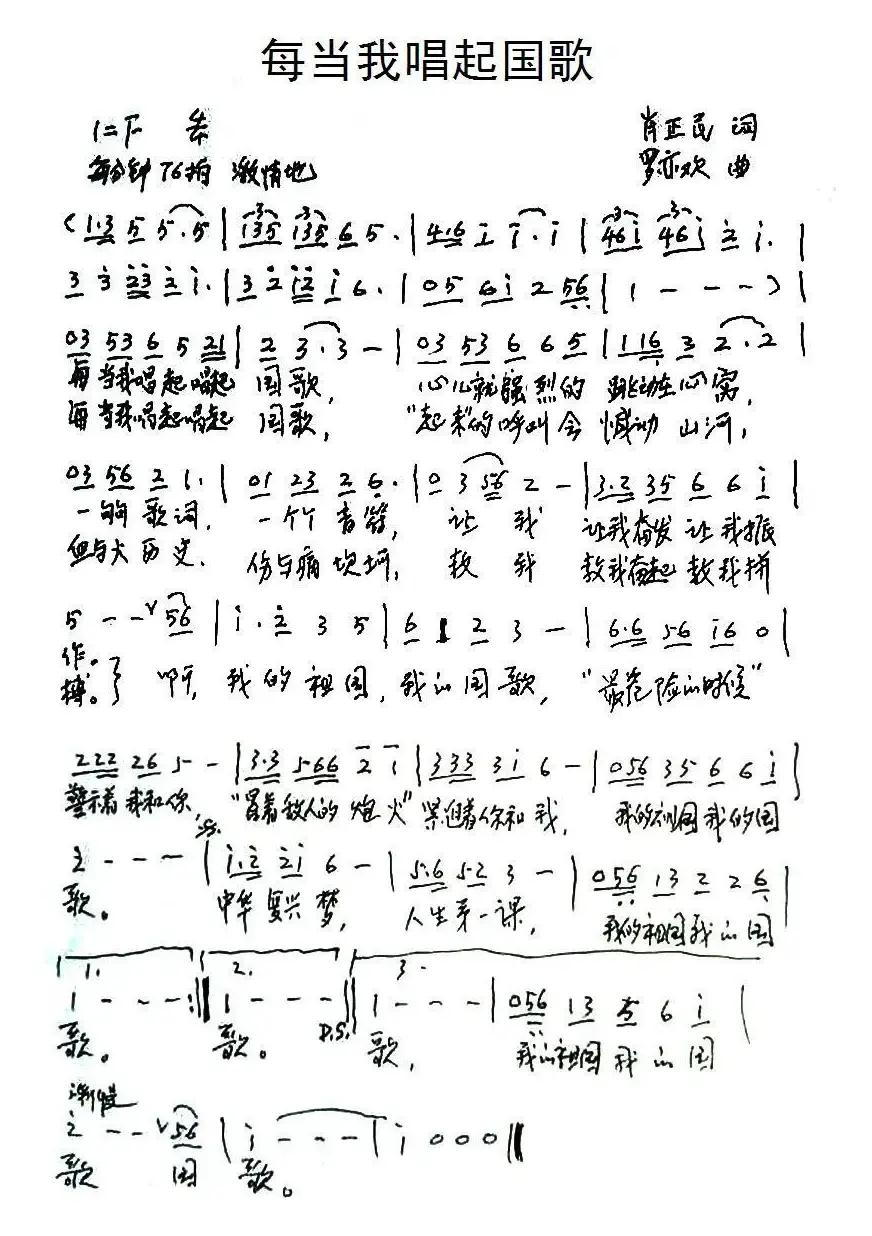 每当我唱起国歌
1=F 4/4 肖正民 词
每分钟76拍 激情地 罗亦欢 曲
(1·3 5 5·5 | 135 135 6 5· | 4·6 i i·i | 46i 46i 2 i· |
3 3 23 2 i· | 3 2 i2 i 6· | 05 6i 2 56 | 1 - - - ) |
03 53 6 5 21 | 2 3·3 - | 03 53 6 6 5 | 1 16 3 2·2 |
每当我唱起唱起 国歌, 心儿就强烈的 跳动在心窝,
每当我唱起唱起 国歌, "起来"的呼叫会 憾动 山河,
03 56 2 1· | 01 23 2 6· | 0 3 56 2 - | 3·2 35 6 6 i |
一句句 歌词, 一个个 音符, 让 我 让我奋发 让我振
血与火 历史, 伤与痛 坎坷, 教 我 教我奋起 教我拼
5 - - 56 | i·2 3 5 | 6 1 2 3 - | 6·6 56 i6 0 |
作。
搏。} 啊, 我的祖国, 我的国歌, "最危险的时候"
222 26 5 - | 3·3 566 2 i | 333 3i 6 - | 056 35 6 6 i |
警示着我和你, "冒着敌人的 炮火" 紧追着你和我, 我的祖国我的国
2 - - - | i·2 2i 6 - | 5·6 5·2 3 - | 056 13 2 2 6 |
歌。 中华 复兴 梦, 人生第一课, 我的祖国我的国
1. 2. 3.
1 - - - :‖ 1 - - - ‖ 1 - - - | 056 13 5 6 i |
歌。 歌。 D.S. 歌, 我的祖国我的国
渐慢
2 - - 56 | i - - - | i 0 0 0 ‖
歌 国 歌。